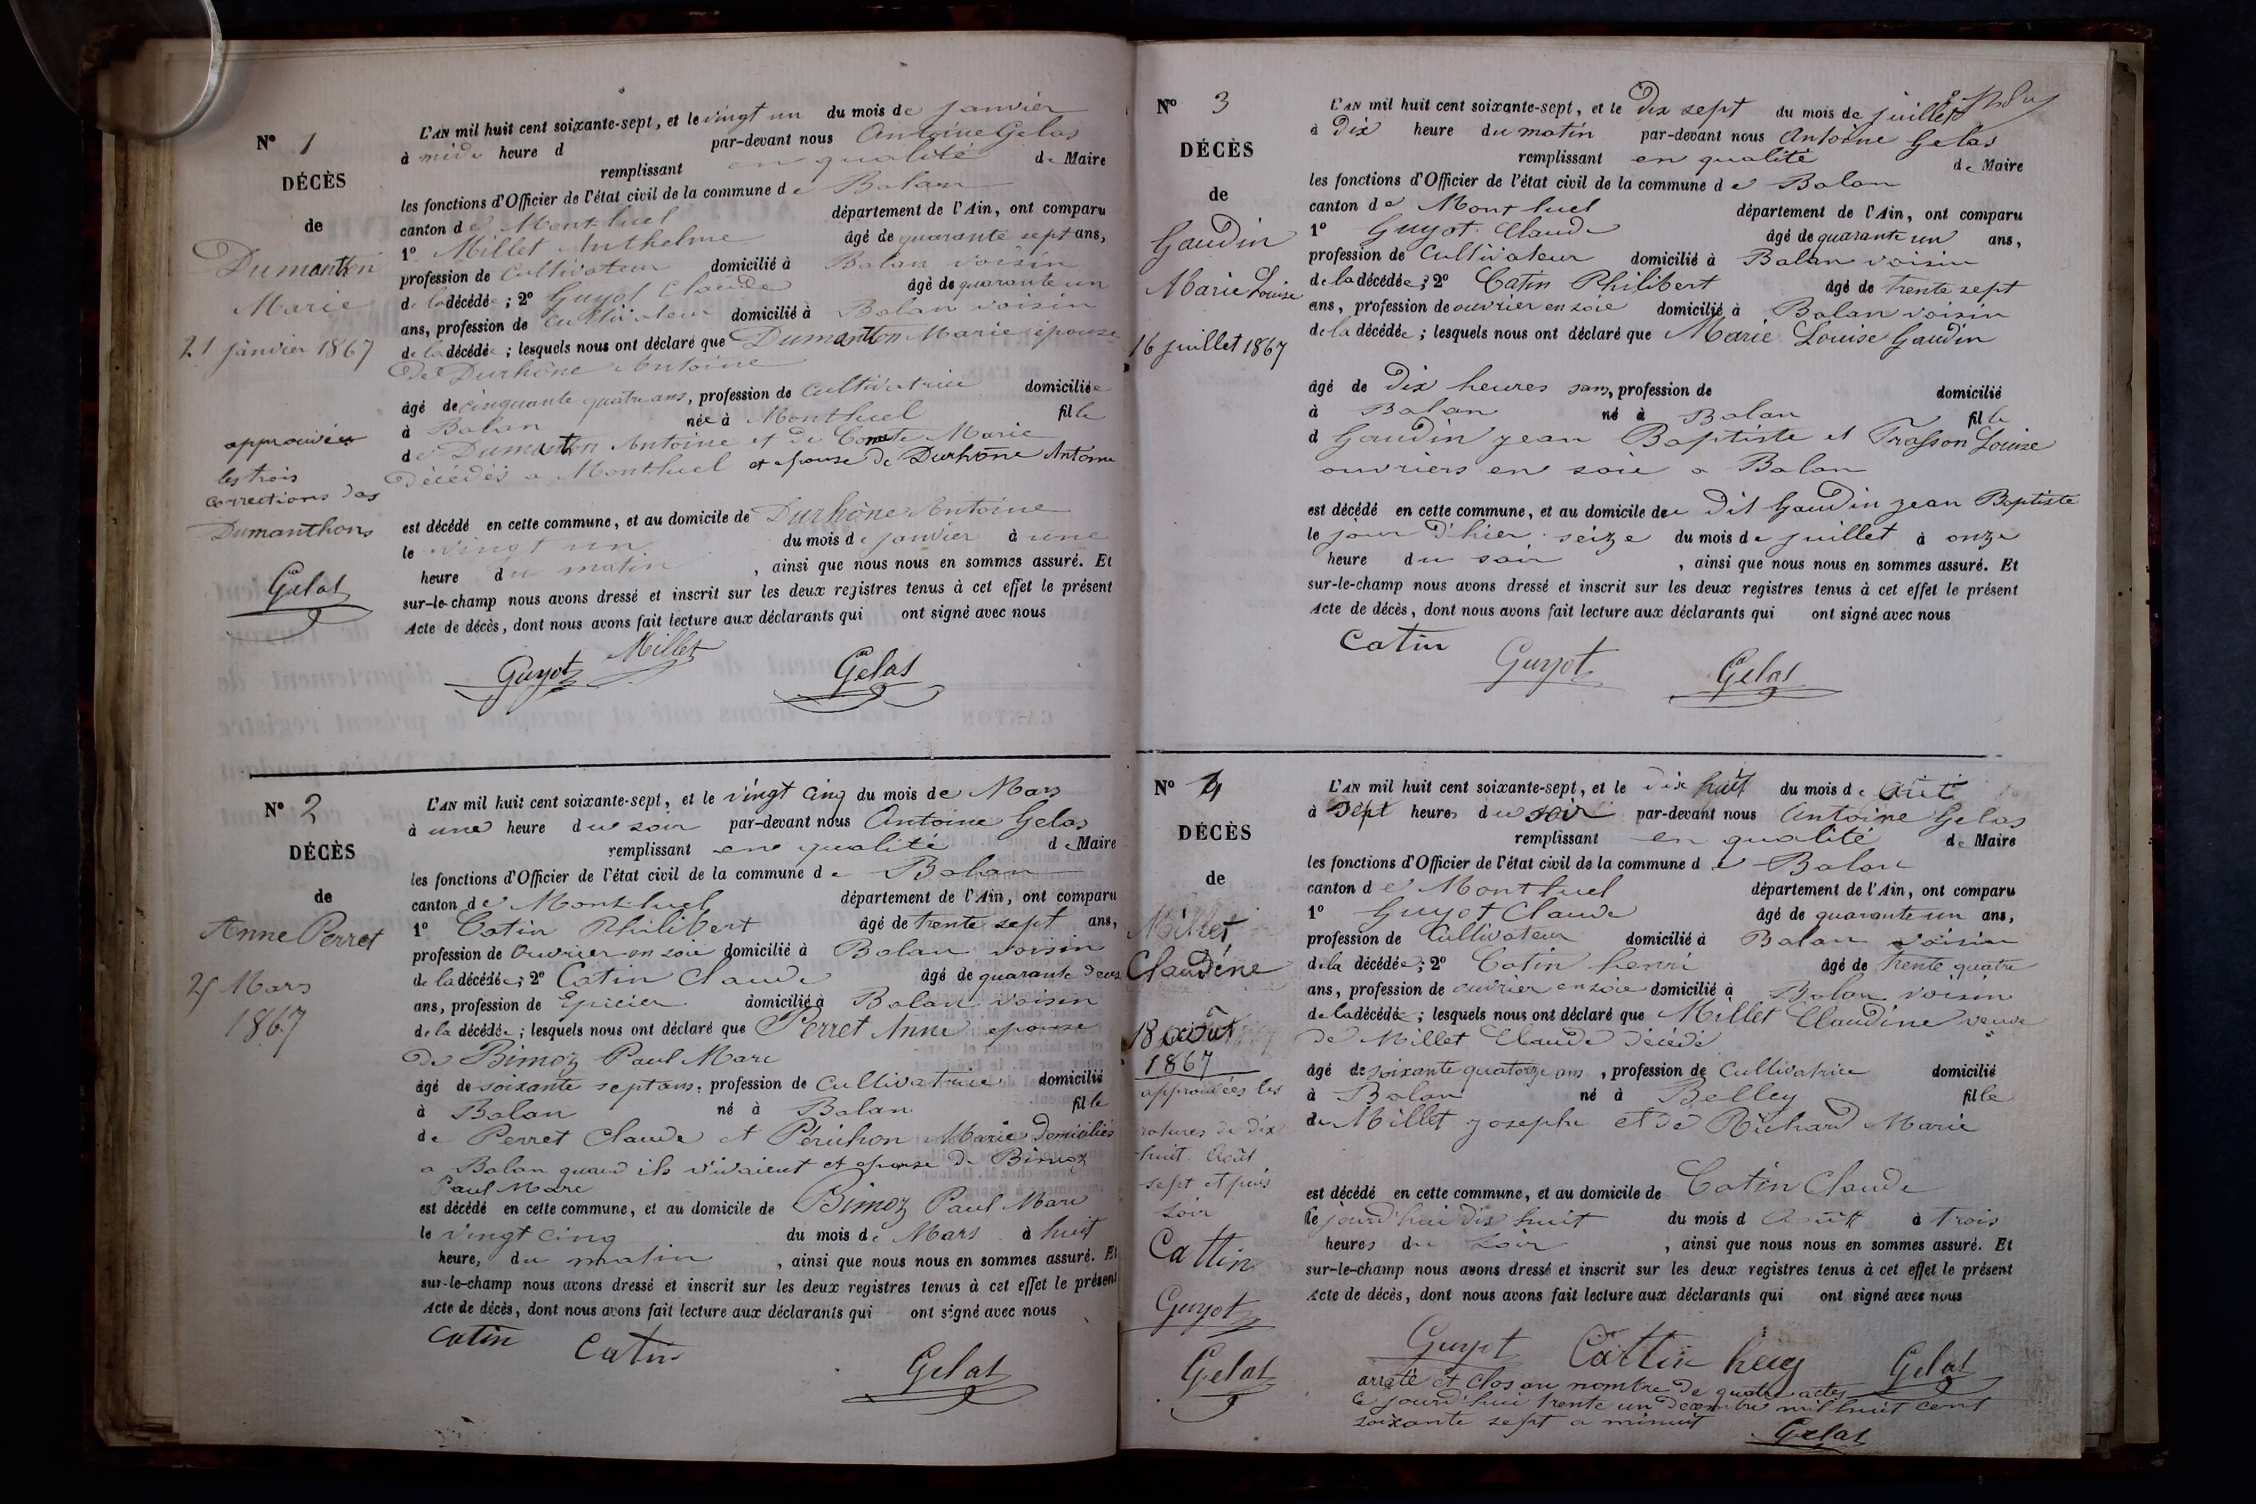 N° 1
DÉCÈS
de
Dumanthon
Marie
21 janvier 1867
approuvées
les trois
corrections des
Dumanthons
Gelas
L'AN mil huit cent soixante-sept, et le vingt un du mois de janvier
à midi heure d par-devant nous Antoine Gelas
remplissant en qualité de Maire
les fonctions d'Officier de l'état civil de la commune de Balan
canton de Montluel département de l'Ain, ont comparu
1° Millet Anthelme âgé de quarante sept ans,
profession de Cultivateur domicilié à Balan voisin
de la décédée ; 2° Guyot Claude âgé de quarante un
ans, profession de Cultivateur domicilié à Balan voisin
de la décédée ; lesquels nous ont déclaré que Dumanthon Marie épouse
de Durhône Antoine
âgé de cinquante quatre ans, profession de Cultivatrice domiciliée
à Balan née à Montluel fille
de Dumanthon Antoine et de Comte Marie
Décédés a Montluel et epouse de Durhône Antoine
est décédé en cette commune, et au domicile de Durhône Antoine
le vingt un du mois de janvier à une
heure du matin , ainsi que nous nous en sommes assuré. Et
sur-le-champ nous avons dressé et inscrit sur les deux registres tenus à cet effet le présent
Acte de décès, dont nous avons fait lecture aux déclarants qui ont signé avec nous
Guyot Millet Gelas
N° 2
DÉCÈS
de
Anne Perret
25 Mars
1867
L'AN mil huit cent soixante-sept, et le vingt cinq du mois de Mars
à une heure du soir par-devant nous Antoine Gelas
remplissant en qualité de Maire
les fonctions d'Officier de l'état civil de la commune de Balan
canton de Montluel département de l'Ain, ont comparu
1° Catin Philibert âgé de trente sept ans,
profession de Ouvrier en soie domicilié à Balan voisin
de la décédée ; 2° Catin Claude âgé de quarante deux
ans, profession de Epicier domicilié à Balan voisin
de la décédée ; lesquels nous ont déclaré que Perret Anne epouse
de Bimoz Paul Marc
âgé de soixante sept ans, profession de Cultivatrice domicilié
à Balan né à Balan fille
de Perret Claude et Périchon Marie Domiciliés
a Balan quand ils vivaient et epouse de Bimoz
Paul Marc
est décédé en cette commune, et au domicile de Bimoz Paul Marc
le vingt cinq du mois de Mars à huit
heure, du matin , ainsi que nous nous en sommes assuré. Et
sur-le-champ nous avons dressé et inscrit sur les deux registres tenus à cet effet le présent
Acte de décès, dont nous avons fait lecture aux déclarants qui ont signé avec nous
Catin Catin Gelas
N° 3
DÉCÈS
de
Gaudin
Marie Louise
16 juillet 1867
L'AN mil huit cent soixante-sept, et le Dix sept du mois de juillet
à Dix heure du matin par-devant nous Antoine Gelas
remplissant en qualité de Maire
les fonctions d'Officier de l'état civil de la commune de Balan
canton de Montluel département de l'Ain, ont comparu
1° Guyot Claude âgé de quarante un ans,
profession de Cultivateur domicilié à Balan voisin
de la décédée ; 2° Catin Philibert âgé de trente sept
ans, profession de ouvrier en soie domicilié à Balan voisin
de la décédée ; lesquels nous ont déclaré que Marie Louise Gaudin
âgé de Dix heures ans, profession de domicilié
à Balan né à Balan fille
d Gaudin jean Baptiste et Trasson Louise
ouvriers en soie a Balan
est décédé en cette commune, et au domicile de Dit Gaudin jean Baptiste
le jour D'hier seize du mois de juillet à onze
heure du soir , ainsi que nous nous en sommes assuré. Et
sur-le-champ nous avons dressé et inscrit sur les deux registres tenus à cet effet le présent
Acte de décès, dont nous avons fait lecture aux déclarants qui ont signé avec nous
Catin Guyot Gelas
N° 4
DÉCÈS
de
Millet
Claudine
18 août
1867
approuvées les
ratures de dix
huit Août
sept et puis
soir
Cattin
Guyot
Gelas
L'AN mil huit cent soixante-sept, et le dix huit du mois de Août
à sept heures du soir par-devant nous Antoine Gelas
remplissant en qualité de Maire
les fonctions d'Officier de l'état civil de la commune de Balan
canton de Montluel département de l'Ain, ont comparu
1° Guyot Claude âgé de quarante un ans,
profession de Cultivateur domicilié à Balan voisin
de la décédée ; 2° Catin henri âgé de trente quatre
ans, profession de ouvrier en soie domicilié à Balan voisin
de la décédée ; lesquels nous ont déclaré que Millet Claudine veuve
de Millet Claude Décédé
âgé de soixante quatorze ans , profession de Cultivatrice domicilié
à Balan né à Belley fille
de Millet josephe et de Richard Marie
est décédé en cette commune, et au domicile de Catin Claude
le jourd'hui dix huit du mois d Août à trois
heures du soir , ainsi que nous nous en sommes assuré. Et
sur-le-champ nous avons dressé et inscrit sur les deux registres tenus à cet effet le présent
Acte de décès, dont nous avons fait lecture aux déclarants qui ont signé avec nous
Guyot Cattin Gelas
arrêté et clos au nombre de quatre actes
Ce jourd'hui trente un Decembre mil huit cent
soixante sept a minuit
Gelas